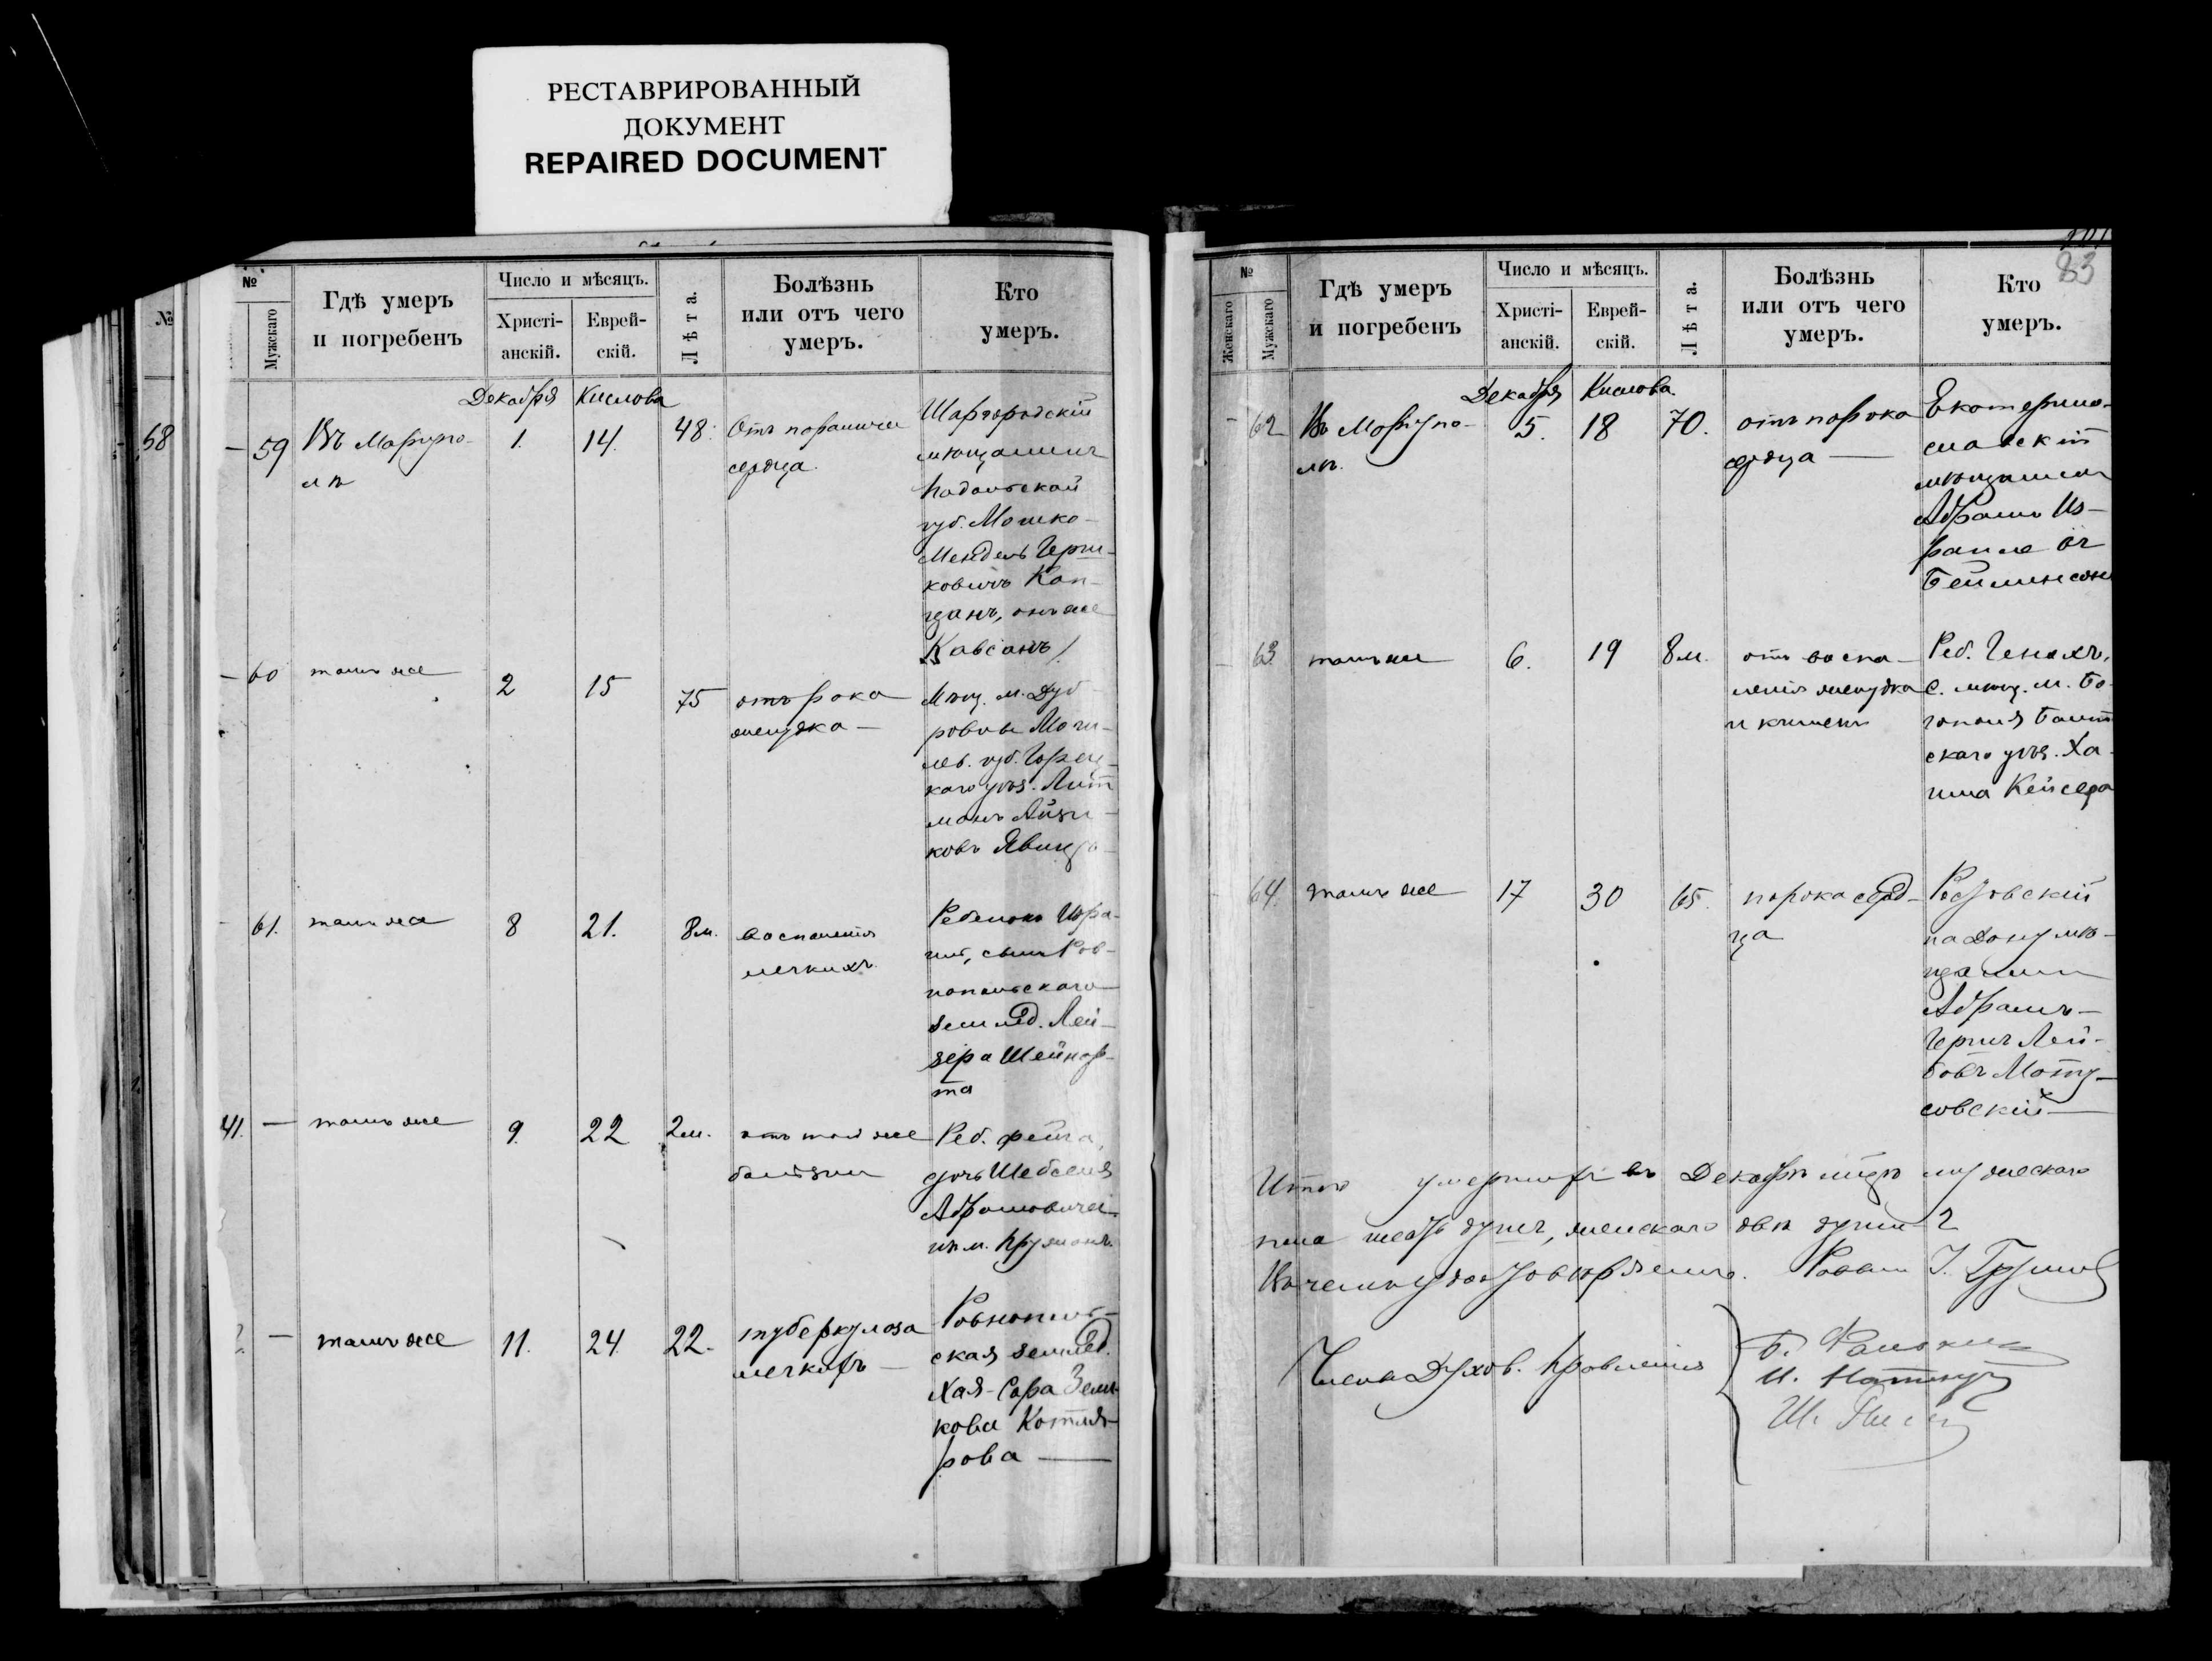 РЕСТАВРИРОВАННЫЙ
ДОКУМЕНТ
REPAIRED DOCUMENT
№
58
№
Мужскаго
Гдѣ умеръ
и погребенъ
Число и мѣсяцъ.
Христі-
анскій.
Еврей-
скій.
Лѣта.
Болѣзнь
или отъ чего
умеръ.
Кто
умеръ.
Декабря Кислова
— 59 Въ Маріупо-
лѣ
1. 14. 48.
Отъ паралича
сердца.
Шаргородскій
мѣщанинъ
Подольской
губ. Мошко-
Мендель Герш-
ковичъ Кап-
цанъ, онъ же
Кавсанъ
— 60 тамъ же 2 15 75
отъ рака
желудка —
Мѣщ. м. Дуб-
ровны Моги-
лев. губ. Горец-
каго уѣз. Лит
манъ Айзи-
ковъ
61. тамъ же 8 21. 8м.
воспаленія
легкихъ
Ребенокъ
сынъ Ров-
нопольскаго
землед. Лей-
зера Шейнфр-
та
41. — тамъ же 9. 22 2м.
отъ той же
болѣзни
Реб. Фейга,
дочь Шебселя
Абрамовича
— тамъ же 11. 24. 22.
туберкулоза
легкихъ —
Ровнополь-
ская землед.
Хая-Сара Зель-
кова Котля-
рова —
83
№
Женскаго
Мужскаго
Гдѣ умеръ
и погребенъ
Число и мѣсяцъ.
Христі-
анскій.
Еврей-
скій.
Лѣта.
Болѣзнь
или отъ чего
умеръ.
Кто
умеръ.
Декабря Кислова.
— 62 Въ Маріупо-
лѣ.
5. 18 70.
отъ порока
сердца —
Екатерино-
славскій
мѣщанинъ
Абрамъ Из-
раилевъ
Бейлинсонъ
— 63. тамъ же 6. 19 8м.
отъ воспа-
ленія желудка
и кишекъ
Реб. Генахъ,
с. мѣщ. м. Бо-
гополя Балт
скаго уѣз. Ха-
има Кейсера
64. тамъ же 17 30 65.
порока серд-
ца
Ростовскій
на Дону мѣ-
щанинъ
Абрамъ-
Гершъ Лей-
бовъ Мату-
совскій —
Итого умершихъ въ Декабрѣ м-цѣ мужескаго
пола шесть душъ, женскаго двѣ души 2
Въ чемъ и удостовѣряемъ. Раввинъ
Члены Духов. Правленія